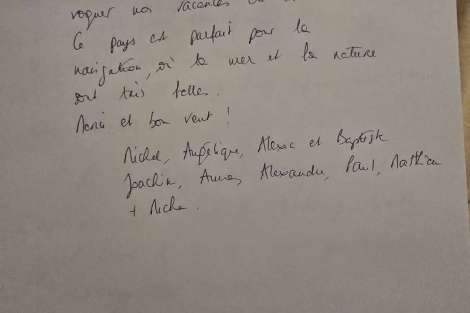 voguer nos vacances
Ce pays est parfait pour la
navigation, où la mer et la nature
sont très belles.
Merci et bon vent !
Michel, Angélique, Alexis et Baptiste
Joachim, Anne, Alexandre, Paul, Matthieu
+ Micha.